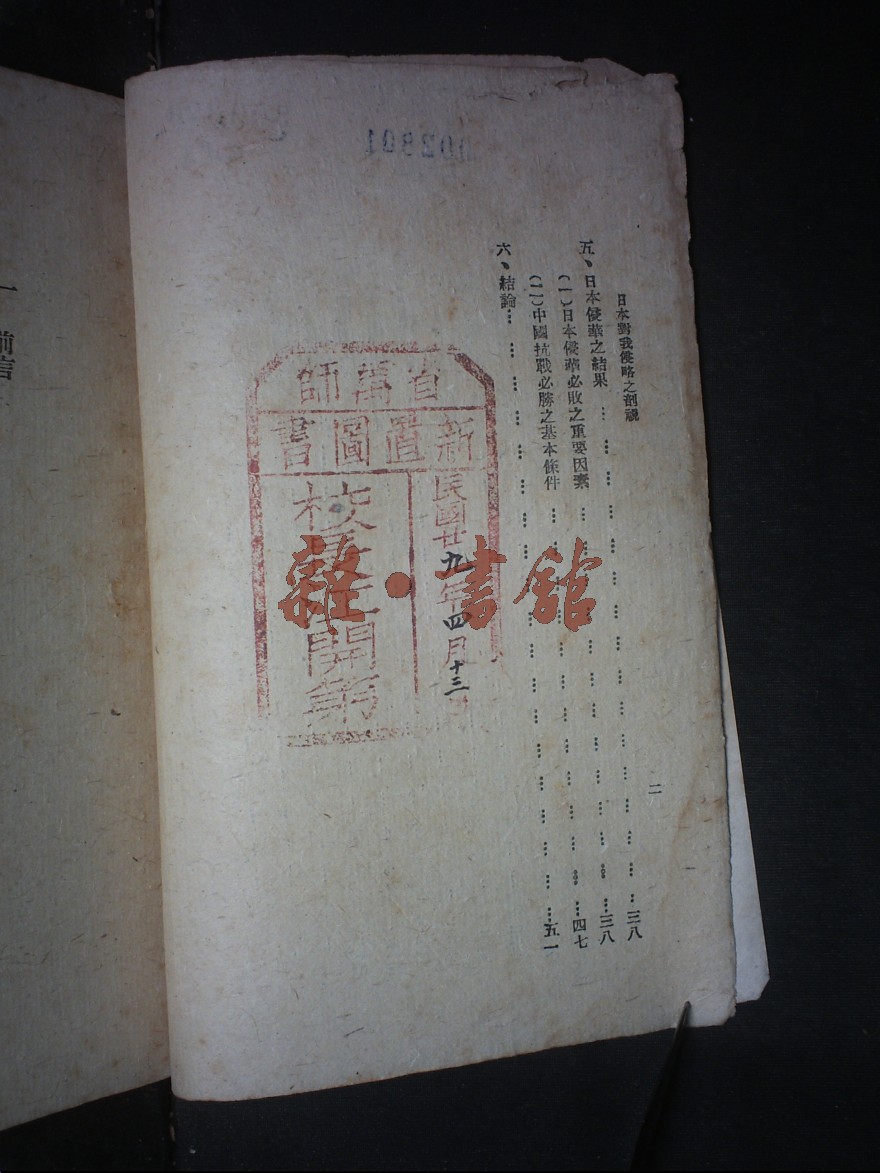 日本對我侵略之剖視
二
五、日本侵華之結果……三八
(一)日本侵華必敗之重要因素……三八
(二)中國抗戰必勝之基本條件……四七
六、結論……五一
省萬師
新置圖書
民國廿九年四月十三
校
開第
雜·書館
一 前言